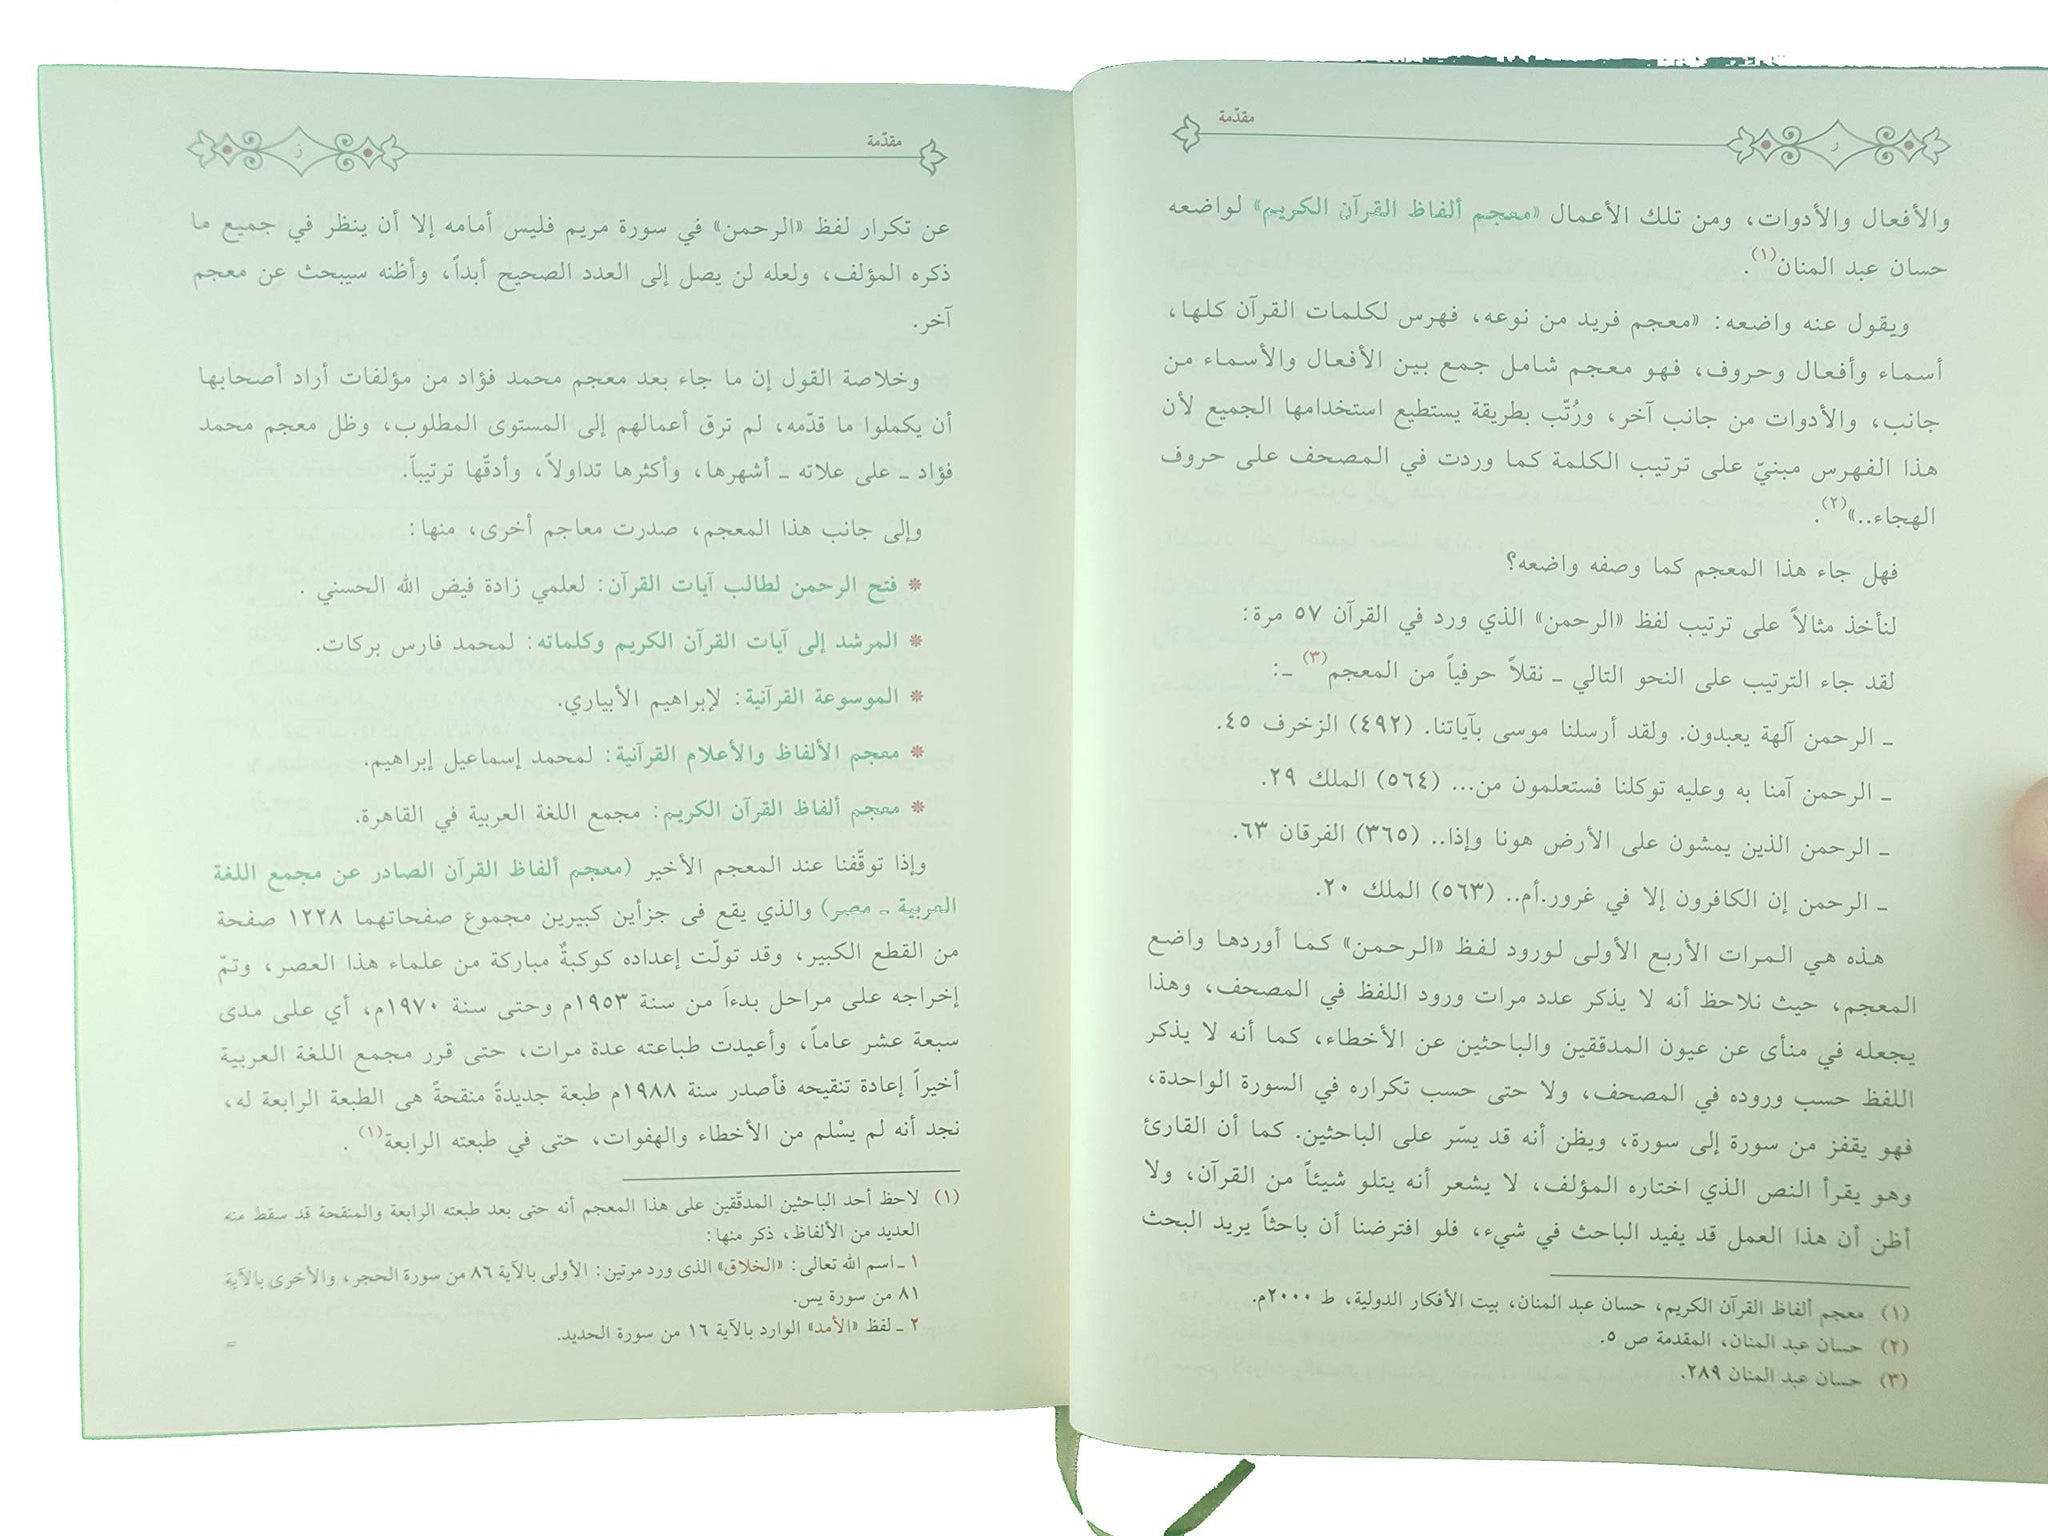 مقدّمة
ر
والأفعال والأدوات، ومن تلك الأعمال «معجم ألفاظ القرآن الكريم» لواضعه
حسان عبد المنان(١).
ويقول عنه واضعه: «معجم فريد من نوعه، فهرس لكلمات القرآن كلها،
أسماء وأفعال وحروف، فهو معجم شامل جمع بين الأفعال والأسماء من
جانب، والأدوات من جانب آخر، ورُتّب بطريقة يستطيع استخدامها الجميع لأن
هذا الفهرس مبنيّ على ترتيب الكلمة كما وردت في المصحف على حروف
الهجاء..»(٢).
فهل جاء هذا المعجم كما وصفه واضعه؟
لنأخذ مثالاً على ترتيب لفظ «الرحمن» الذي ورد في القرآن ٥٧ مرة:
لقد جاء الترتيب على النحو التالي ـ نقلاً حرفياً من المعجم(٣) ـ:
ـ الرحمن آلهة يعبدون. ولقد أرسلنا موسى بآياتنا. (٤٩٢) الزخرف ٤٥.
ـ الرحمن آمنا به وعليه توكلنا فستعلمون من... (٥٦٤) الملك ٢٩.
ـ الرحمن الذين يمشون على الأرض هونا وإذا.. (٣٦٥) الفرقان ٦٣.
ـ الرحمن إن الكافرون إلا في غرور.أم.. (٥٦٣) الملك ٢٠.
هذه هي المرات الأربع الأولى لورود لفظ «الرحمن» كما أوردها واضع
المعجم، حيث نلاحظ أنه لا يذكر عدد مرات ورود اللفظ في المصحف، وهذا
يجعله في منأى عن عيون المدققين والباحثين عن الأخطاء، كما أنه لا يذكر
اللفظ حسب وروده في المصحف، ولا حتى حسب تكراره في السورة الواحدة،
فهو يقفز من سورة إلى سورة، ويظن أنه قد يسّر على الباحثين. كما أن القارئ
وهو يقرأ النص الذي اختاره المؤلف، لا يشعر أنه يتلو شيئاً من القرآن، ولا
أظن أن هذا العمل قد يفيد الباحث في شيء، فلو افترضنا أن باحثاً يريد البحث
(١) معجم ألفاظ القرآن الكريم، حسان عبد المنان، بيت الأفكار الدولية، ط ٢٠٠٠م.
(٢) حسان عبد المنان، المقدمة ص ٥.
(٣) حسان عبد المنان ٢٨٩.
مقدّمة
ز
عن تكرار لفظ «الرحمن» في سورة مريم فليس أمامه إلا أن ينظر في جميع ما
ذكره المؤلف، ولعله لن يصل إلى العدد الصحيح أبداً، وأظنه سيبحث عن معجم
آخر.
وخلاصة القول إن ما جاء بعد معجم محمد فؤاد من مؤلفات أراد أصحابها
أن يكملوا ما قدّمه، لم ترق أعمالهم إلى المستوى المطلوب، وظل معجم محمد
فؤاد ـ على علاته ـ أشهرها، وأكثرها تداولاً، وأدقّها ترتيباً.
وإلى جانب هذا المعجم، صدرت معاجم أخرى، منها:
* فتح الرحمن لطالب آيات القرآن: لعلمي زادة فيض الله الحسني .
* المرشد إلى آيات القرآن الكريم وكلماته: لمحمد فارس بركات.
* الموسوعة القرآنية: لإبراهيم الأبياري.
* معجم الألفاظ والأعلام القرآنية: لمحمد إسماعيل إبراهيم.
* معجم ألفاظ القرآن الكريم: مجمع اللغة العربية في القاهرة.
وإذا توقّفنا عند المعجم الأخير (معجم ألفاظ القرآن الصادر عن مجمع اللغة
العربية ـ مصر) والذي يقع فى جزأين كبيرين مجموع صفحاتهما ١٢٢٨ صفحة
من القطع الكبير، وقد تولّت إعداده كوكبةٌ مباركة من علماء هذا العصر، وتمّ
إخراجه على مراحل بدءاً من سنة ١٩٥٣م وحتى سنة ١٩٧٠م، أي على مدى
سبعة عشر عاماً، وأعيدت طباعته عدة مرات، حتى قرر مجمع اللغة العربية
أخيراً إعادة تنقيحه فأصدر سنة ١٩٨٨م طبعة جديدةً منقحةً هى الطبعة الرابعة له،
نجد أنه لم يسْلم من الأخطاء والهفوات، حتى في طبعته الرابعة(١) .
(١) لاحظ أحد الباحثين المدقّقين على هذا المعجم أنه حتى بعد طبعته الرابعة والمنقحة قد سقط منه
العديد من الألفاظ، ذكر منها:
١ ـ اسم الله تعالى: «الخلاق» الذى ورد مرتين: الأولى بالآية ٨٦ من سورة الحجر، والأخرى بالآية
٨١ من سورة يس.
٢ ـ لفظ «الأمد» الوارد بالآية ١٦ من سورة الحديد.
=